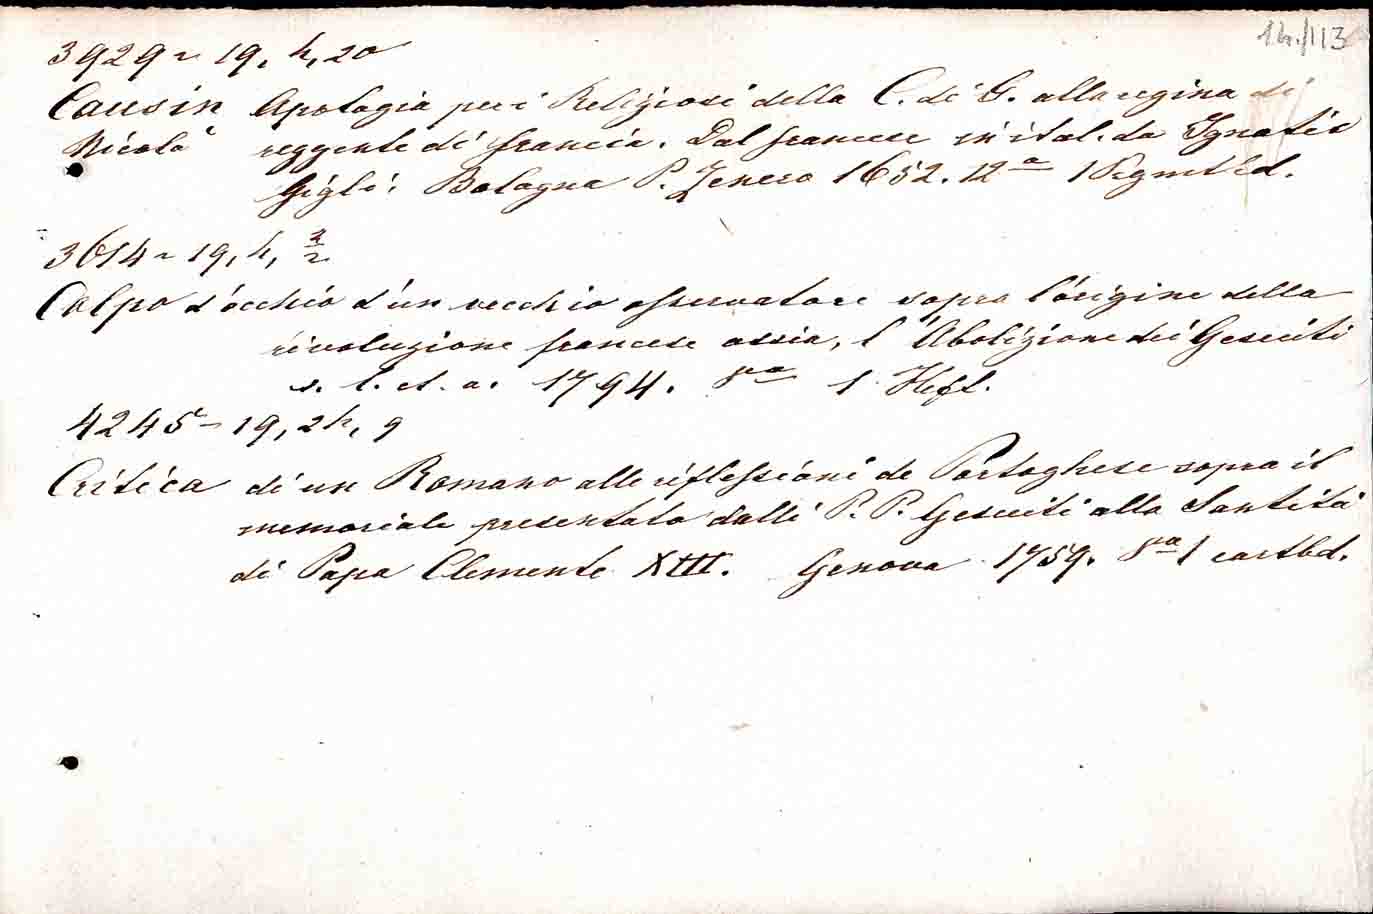 14./113
3929~ 19, h, 20
Causin Apologia per i Religiosi della C. di G. alla regina di
Nicolò reggente di francia. Dal francese in ital. da Ignatio
Gigli. Bologna P. Zenero 1652. 12a 1 Pigmtbd.
3614~ 19, h, 3/2
Colpo d'occhio d'un vecchio osservatore sopra l'origine della
rivoluzione francese ossia, l'Abolizione dei Gesuiti
s. l. et. a. 1794. 8va 1 Heft.
4245~ 19, 2h, 9
Critica di un Romano alle riflessioni de Portoghese sopra il
memoriale presentato dalli P. P. Gesuiti alla Santità
di Papa Clemente XIII. Genova 1759. 8va 1 cartbd.